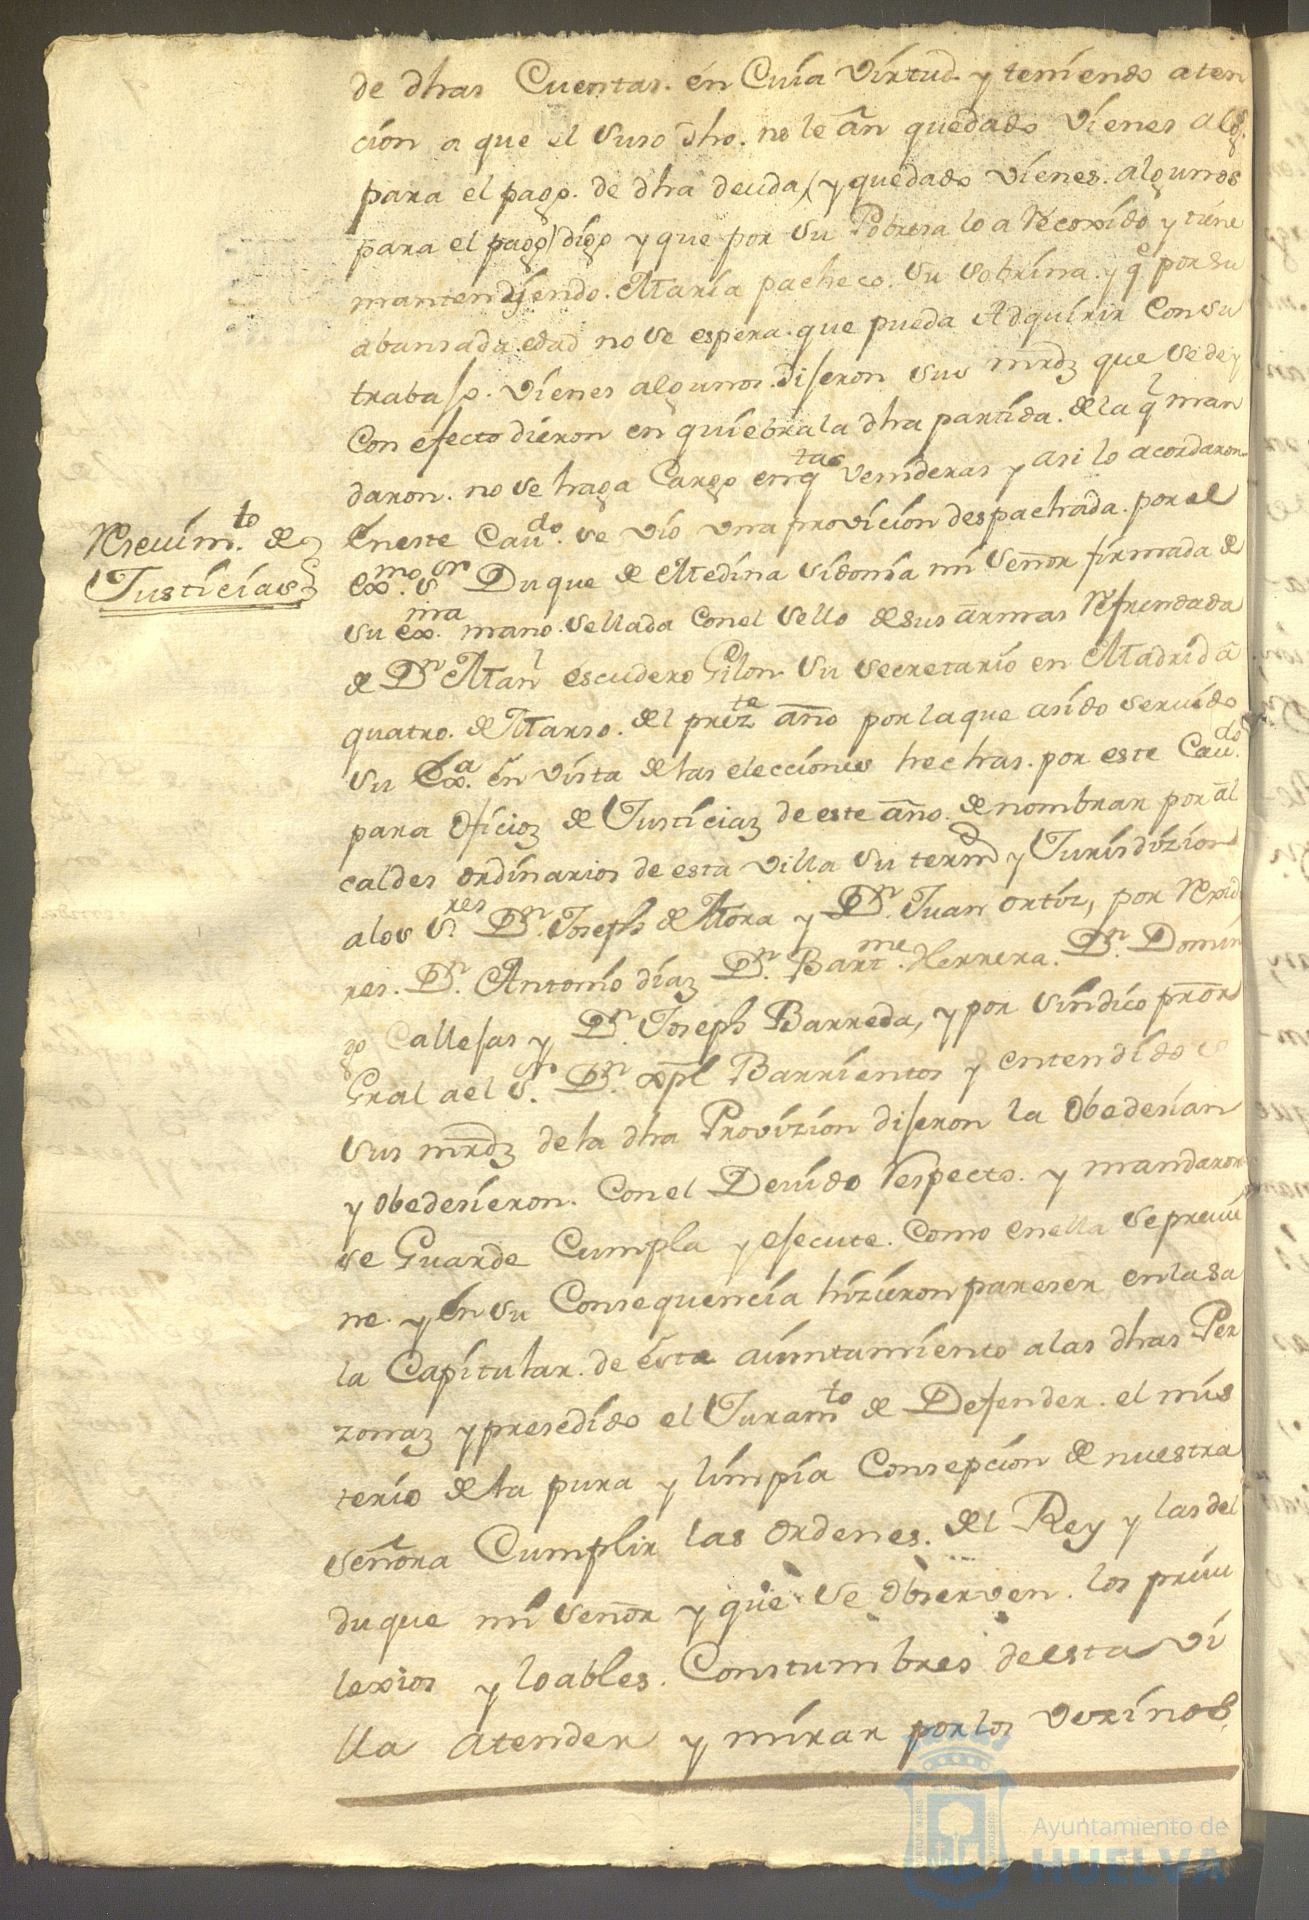 de dhas Cuentas. én Cuia virtud y teniendo aten
ción a que el suso dho. no le an quedado vienes alg.
para el pago. de dha deuda, (y quedado vienes. algunos
para el pago) digo y que por su Pobresa lo a Recoxido y tiene
mantendiendo. Maria pacheco. su sobrina. y q̃ por su
abansada edad no se espera. que pueda Adquirir Con su
trabajo. vienes algunos. dijeron sus mrdz que se de y
Con efecto dieron en quiebra la dha partida. de la q̃ man
daron. no se haga Cargo en qtas venideras y asi lo acordaron
Reciuimto. de
Justicias
Eneste Caudo. se vio una provicion despachada. por el
exmo. sr Duque de Medina sidonia mi señor firmada de
su exma. mano. sellada con el sello de sus armas Refrendada
de Dn Manl escudero Gilon su secretario en Madrid â
quatro. de Marso. del prezte año por la que asido seruido
su Exa. én vista de las elecciones hechas. por este Caudo.
para oficioz de Justiciaz de este año. de nombrar por al
caldes ordinarios de esta villa su termo y Jurisdizion
a los Sres. Dn. Joseph de Mora y Dn. Juan ortiz, por Rexido
res. Dn. Antonio diaz Dn. Bartme. Herrera. Dn. Domin
go Callejas y Dn. Joseph Barreda, y por sindico prõor
Gral a el Sr. Dn. xpl Barrientos y entendido
sus mrdz de la dha Provizion dijeron la obedesian
y obedesieron. Con el Deuido respecto. y mandaron
se Guarde Cumpla y ejecute. Como en ella se preuie
ne. y én su Consequencia hizieron pareser en la sa
la Capitular. de ésta aiuntamiento a las dhas Per
zonaz y presedido el Juramto de Defender. el mis
terio de la pura y limpia Consepcion de nuestra
señora Cumplir las ordenes. del Rey y las del
duque mi señor y que se observen. los priui
lexios y loables. Constumbres de esta vi
lla atender y mirar por los vezinos
Ayuntamiento de
HUELVA